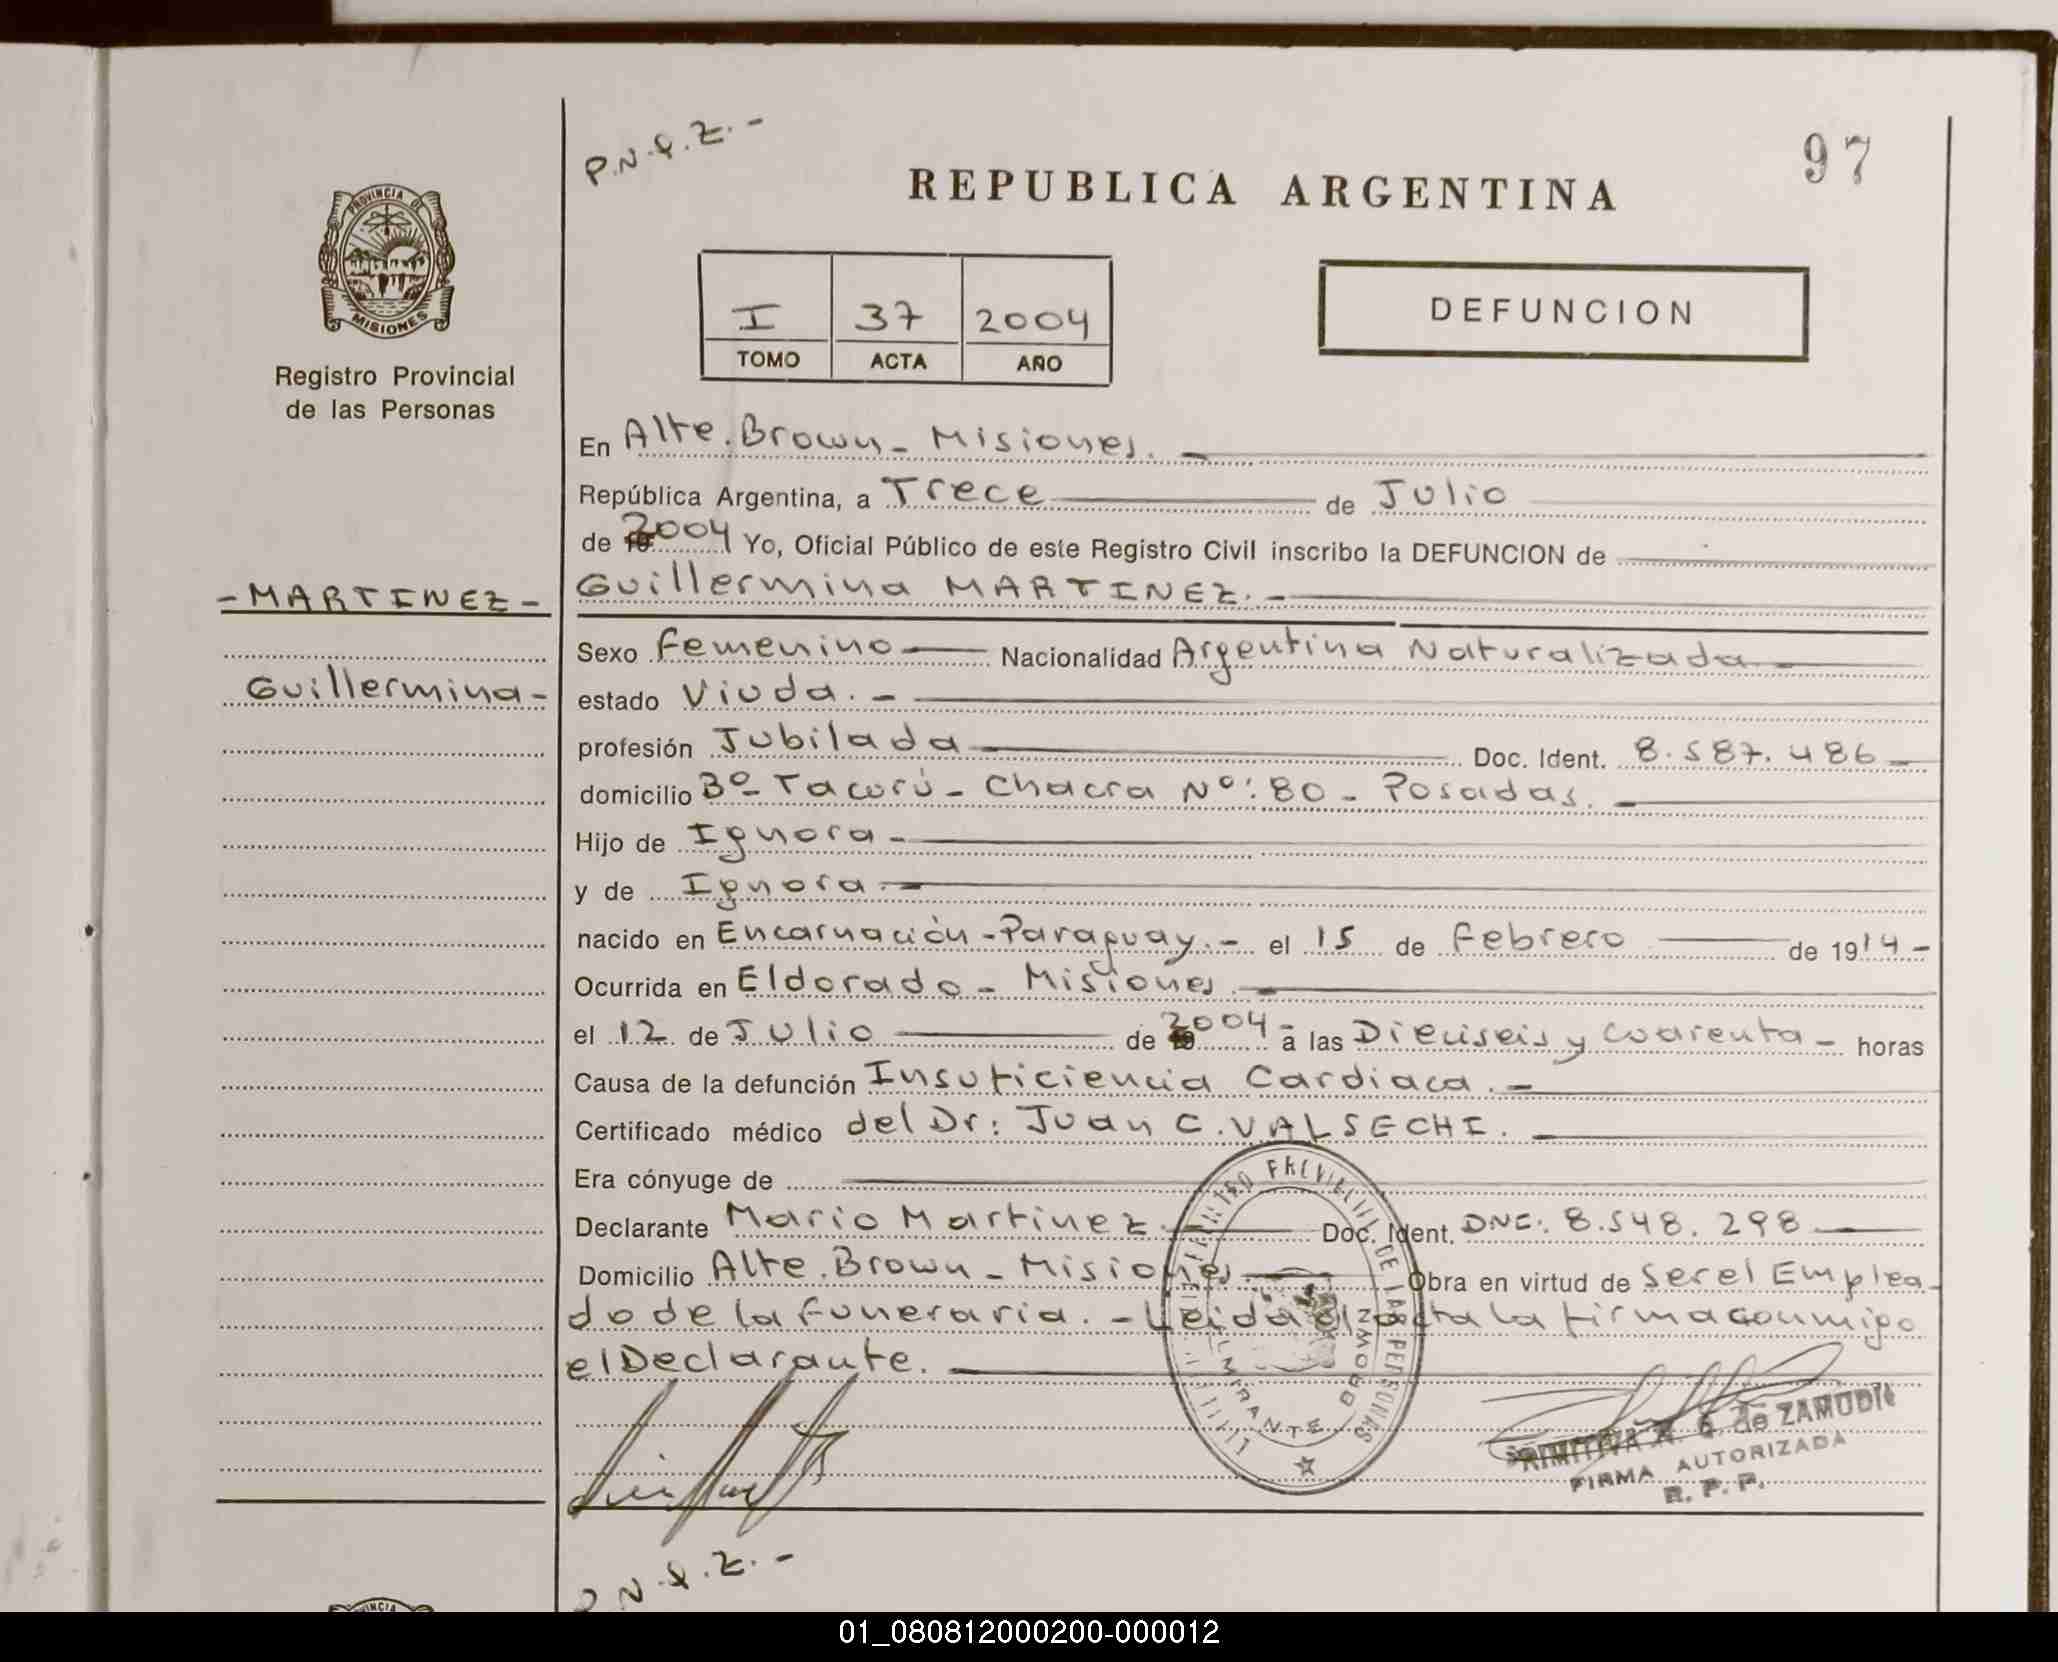 P.N.Q.Z.-
97
REPUBLICA ARGENTINA
PROVINCIA DE
MISIONES
Registro Provincial
de las Personas
I 37 2004
TOMO ACTA AÑO
DEFUNCION
En Alte. Brown - Misiones. -
República Argentina, a Trece de Julio
de 2004 Yo, Oficial Público de este Registro Civil inscribo la DEFUNCION de
- MARTINEZ -
Guillermina MARTINEZ. -
Sexo Femenino Nacionalidad Argentina Naturalizada
Guillermina -
estado Viuda. -
profesión Jubilada Doc. Ident. 8.587.486 -
domicilio Bº Tacurú - Chacra Nº: 80 - Posadas. -
Hijo de Ignora -
y de Ignora. -
nacido en Encarnación - Paraguay. - el 15 de Febrero de 1914 -
Ocurrida en Eldorado - Misiones. -
el 12 de Julio de 2004 - a las Dieciseis y cuarenta - horas
Causa de la defunción Insuficiencia Cardiaca. -
Certificado médico del Dr: Juan C. VALSECHI. -
Era cónyuge de
Declarante Mario Martinez Doc. Ident. DNI: 8.548.298
Domicilio Alte. Brown - Misiones Obra en virtud de Ser el Emplea-
do de la Funeraria. - Leida el acta la firma conmigo
el Declarante.
DE LAS PERSONAS
ALMIRANTE BROWN
A. G. de ZAMUDIO
FIRMA AUTORIZADA
R. P. P.
P.N.Q.Z.-
PROVINCIA
01_080812000200-000012